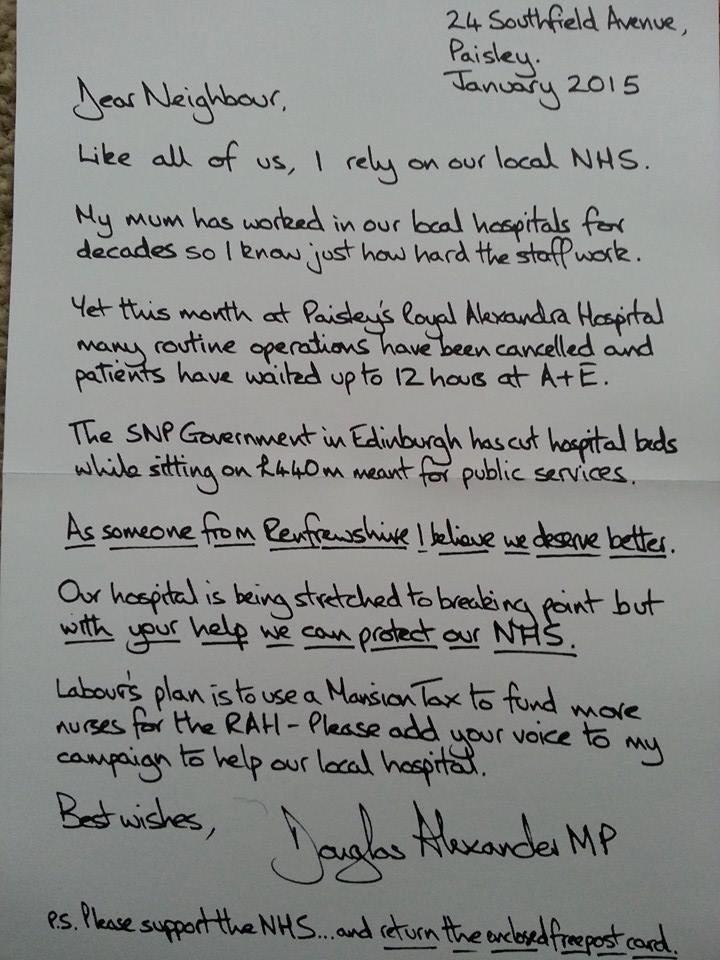 24 Southfield Avenue,
Paisley.
January 2015
Dear Neighbour,
Like all of us, I rely on our local NHS.
My mum has worked in our local hospitals for
decades so I know just how hard the staff work.
Yet this month at Paisley's Royal Alexandra Hospital
many routine operations have been cancelled and
patients have waited up to 12 hours at A+E.
The SNP Government in Edinburgh has cut hospital beds
while sitting on £440m meant for public services.
As someone from Renfrewshire I believe we deserve better.
Our hospital is being stretched to breaking point but
with your help we can protect our NHS.
Labour's plan is to use a Mansion Tax to fund more
nurses for the RAH - Please add your voice to my
campaign to help our local hospital.
Best wishes,
Douglas Alexander MP
P.S. Please support the NHS... and return the enclosed freepost card.